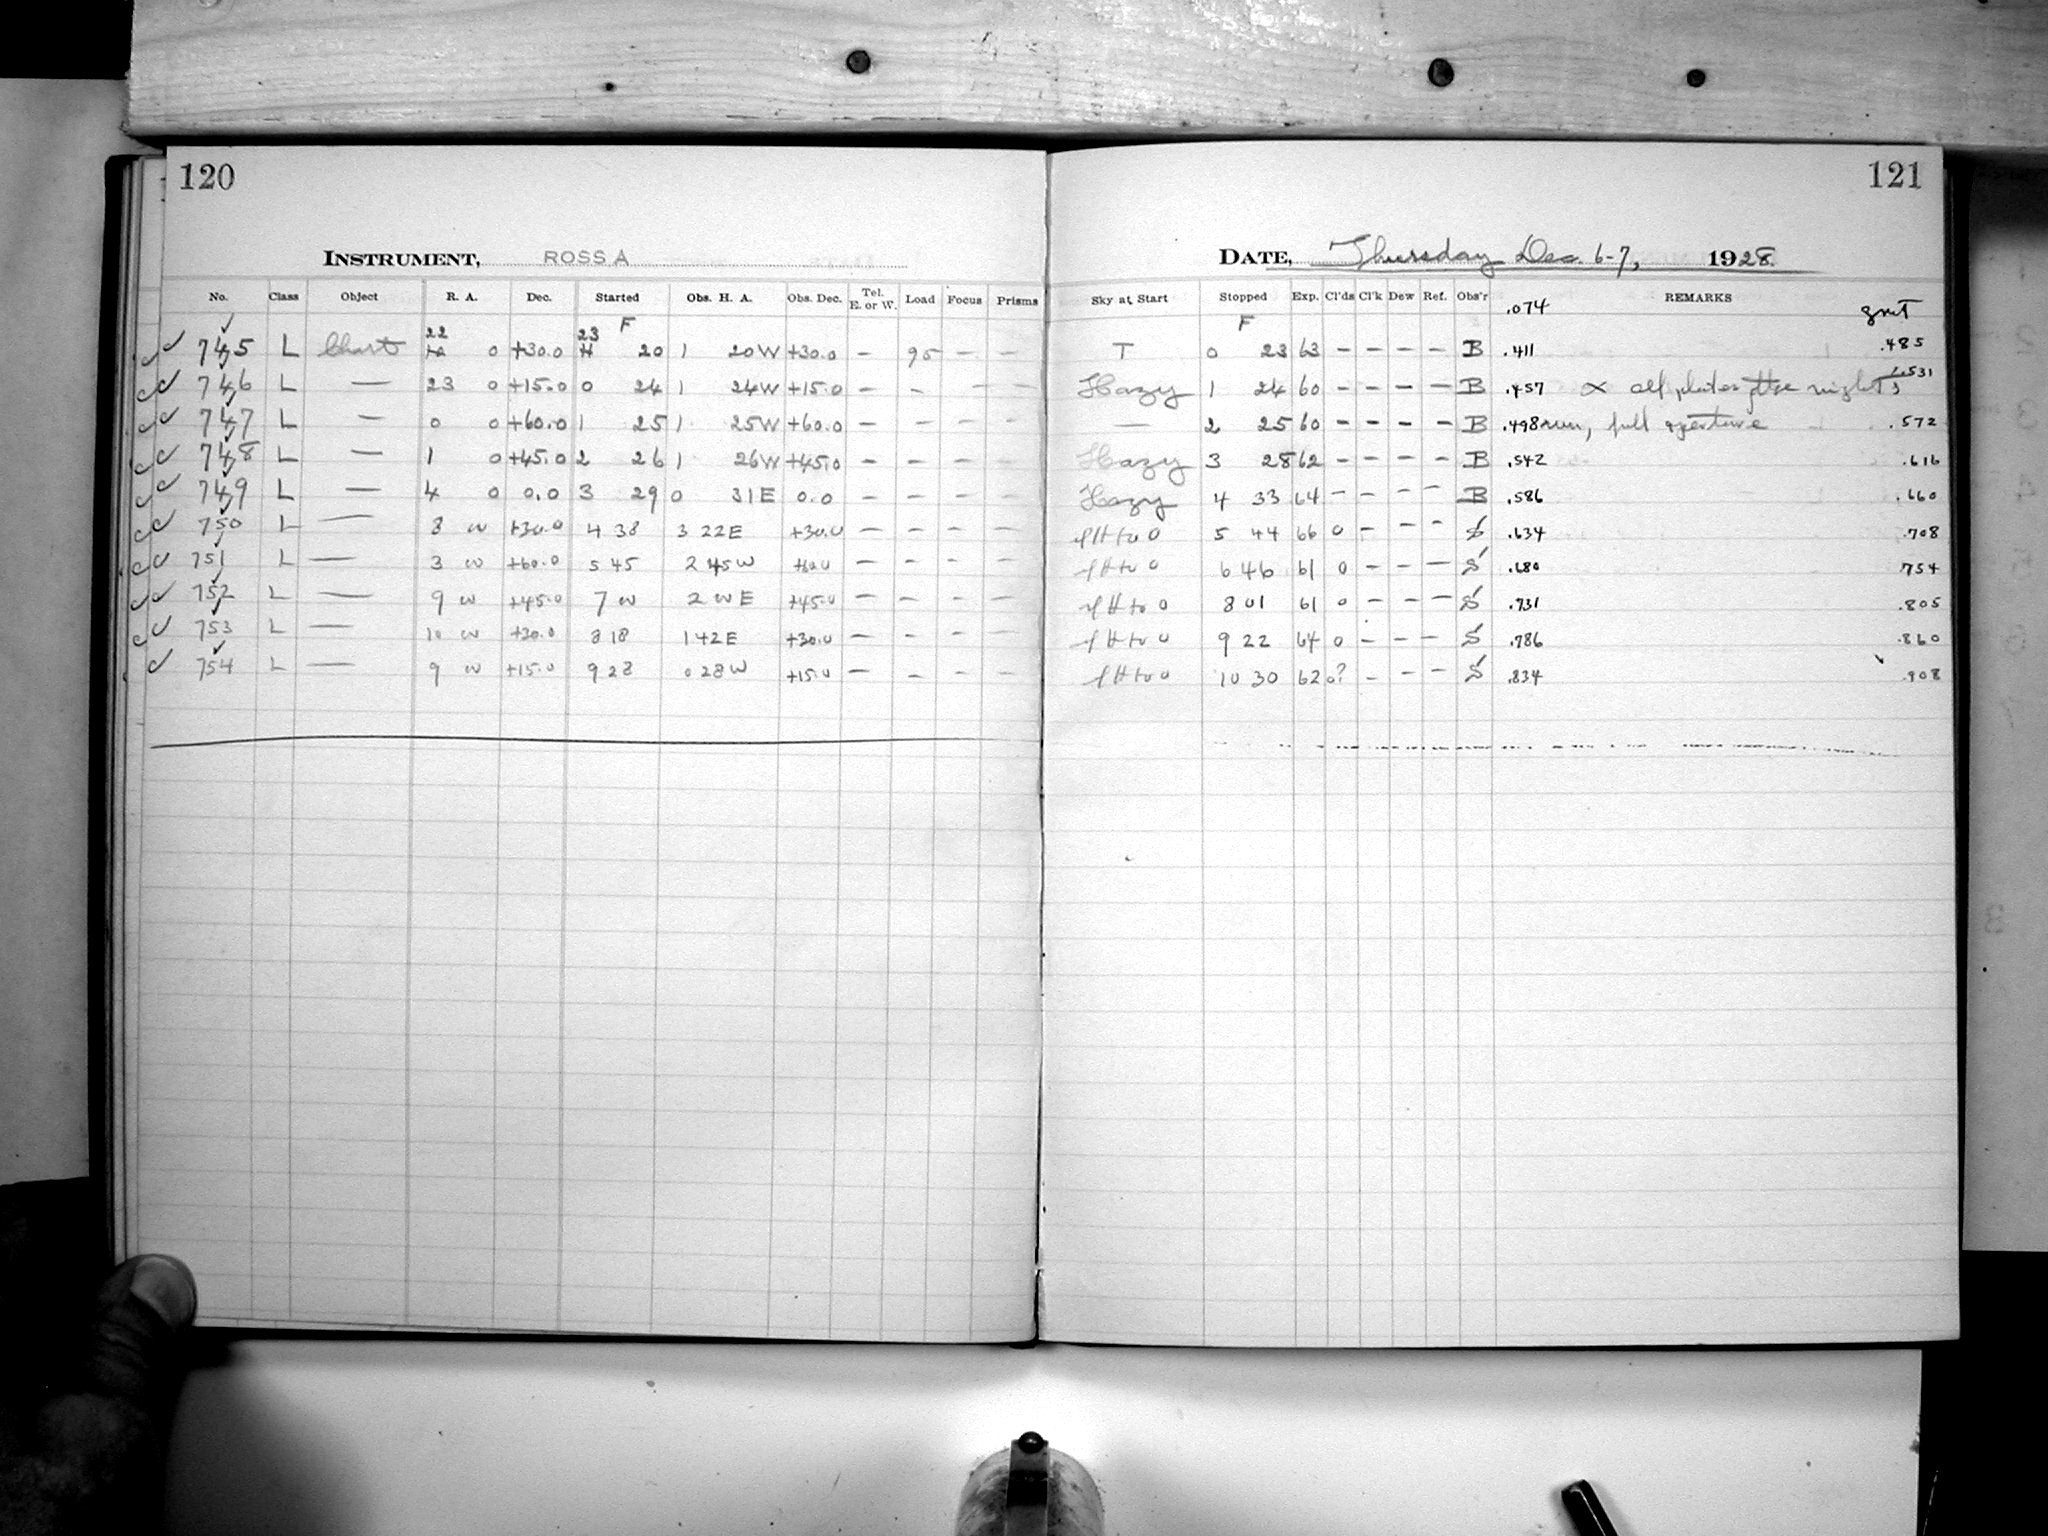 120
INSTRUMENT, ROSS A
No. Class Object R. A. Dec. Started Obs. H. A. Obs. Dec. Tel. E. or W. Load Focus Prisms
22 23 F
745 L Chart 0 +30.0 20 1 20W +30.0 – 95 – –
746 L — 23 0 +15.0 0 24 1 24W +15.0 – – – –
747 L — 0 0 +60.0 1 25 1 25W +60.0 – – – –
748 L — 1 0 +45.0 2 26 1 26W +45.0 – – – –
749 L — 4 0 0.0 3 29 0 31E 0.0 – – – –
750 L — 8 00 +30.0 4 38 3 22E +30.0 – – – –
751 L — 3 00 +60.0 5 45 2 45W +60.0 – – – –
752 L — 9 00 +45.0 7 00 2 00E +45.0 – – – –
753 L — 10 00 +30.0 8 18 1 42E +30.0 – – – –
754 L — 9 00 +15.0 9 28 0 28W +15.0 – – – –
121
DATE, Thursday Dec. 6-7, 1928
Sky at Start Stopped Exp. Cl'ds Cl'k Dew Ref. Obs'r REMARKS
F .074 gmt
T 0 23 63 – – – – B .411 .485
Hazy 1 24 60 – – – – B .457 ∝ all plates the night's .531
— 2 25 60 – – – – B .498 run, full aperture .572
Hazy 3 28 62 – – – – B .542 .616
Hazy 4 33 64 – – – – B .586 .660
H to 0 5 44 66 0 – – – S .634 .708
H to 0 6 46 61 0 – – – S .680 .754
H to 0 8 01 61 0 – – – S .731 .805
H to 0 9 22 64 0 – – – S .786 .860
H to 0 10 30 62 0? – – – S .834 .908